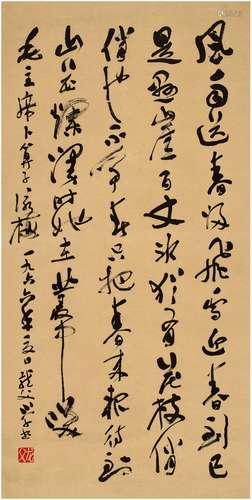 风雨送春归飞雪迎春到已
是悬崖百丈冰犹有花枝俏
俏也不争春只把春来报待到
山花烂漫时她在丛中笑
毛主席卜算子咏梅一九六六年夏日